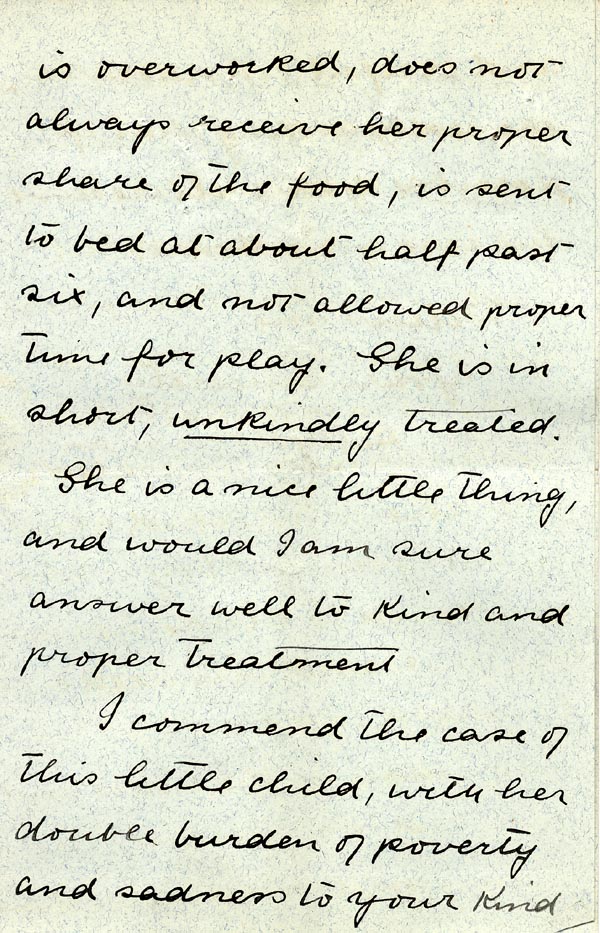 is overworked, does not
always receive her proper
share of the food, is sent
to bed at about half past
six, and not allowed proper
time for play. She is in
short, unkindly treated.
She is a nice little thing,
and would I am sure
answer well to kind and
proper treatment
I commend the case of
this little child, with her
double burden of poverty
and sadness to your kind